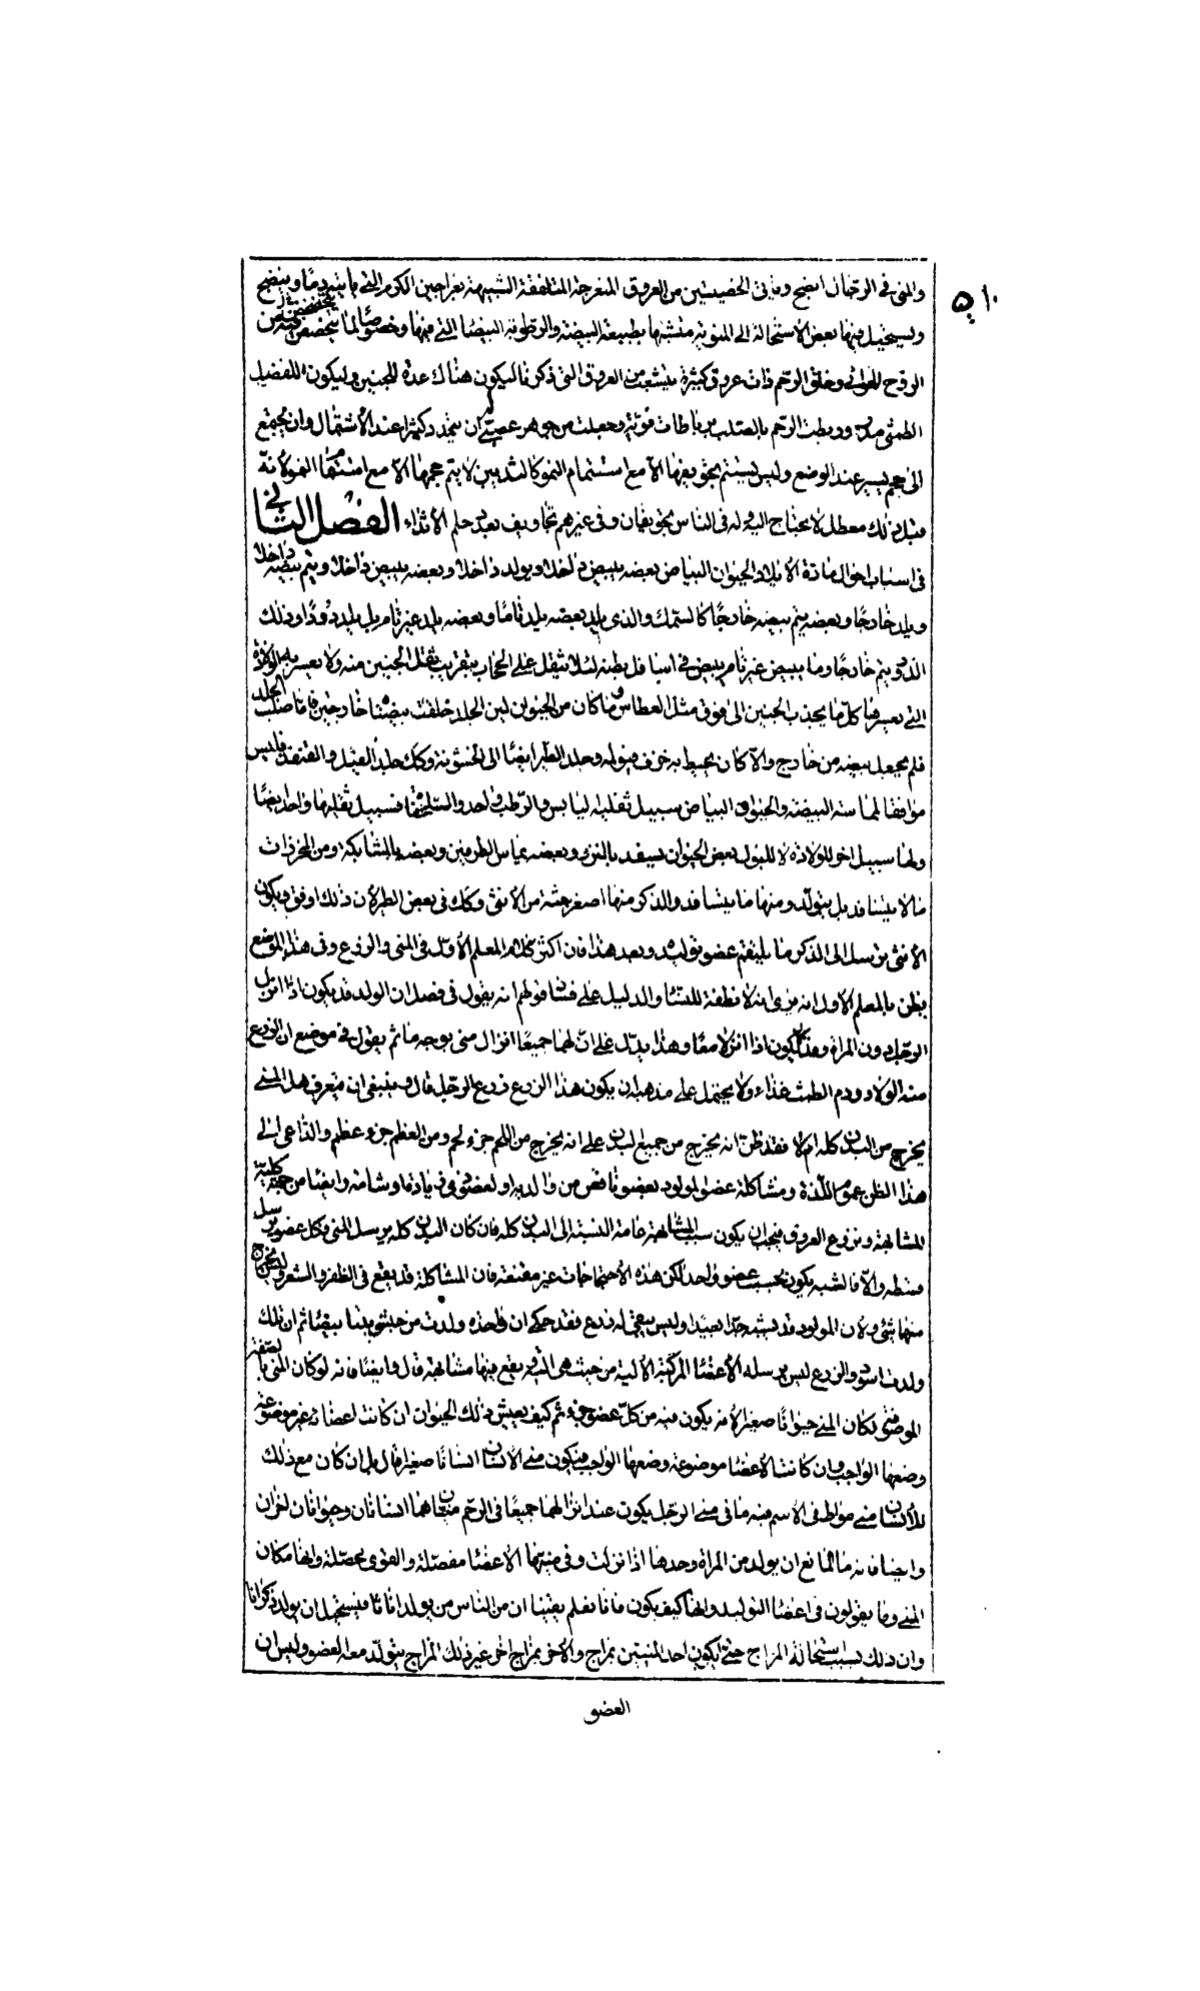 ٥١٠
والمنى فى الرجال انضج وياتى الخصيتين من العروق المنعرجة المتلففة الشبيهة بعراجين الكرم التى ياتيه دما وينضج
ويستحيل فيها بعض الاستحالة الى المنوية متشبها بطبيعة البيضة والرطوبة البيضاء التى فيها وخصوصا لما يتخضخض فيه من
الروح الهوائى وخلق الرحم ذات عروق كثيرة يتشعب من العروق التى ذكرنا ليكون هناك عدة للجنين وليكون للفضل
الطمثى وربطت الرحم بالصلب برباطات قوية وجعلت من جوهر عصبى له ان يتمدد كثيرا عند الاشتمال وان يجتمع
الى حجم يسير عند الوضع وليس يستتم تجويفها الا مع استتمام النمو كالثديين لا يتم حجمها الا مع استتمام النمو لانه
قبل ذلك معطل لا يحتاج اليه وله فى الناس تجويفان وفى غيرهم تجاويف بعدد حلم الاثداء الفصل الثانى
فى اسباب احوال مادة الايلاد الحيوان البياض بعضه يبيض داخلا ويولد داخلا وبعضه يبيض داخلا ويتم بيضه داخلا
ويلد خارجا وبعضه يتم بيضه خارجا كالسمك والذى يلد بعضه يلد تاما وبعضه يلد غير تام بل يلد دودا وذلك
الدود يتم خارجا وما يبيض غير تام يبيض فى اسافل بطنه لئلا يثقل على الحجاب بقرب ثقل الجنين منه ولا يعسر به الولادة
التى يعسرها كل ما يجذب الجنين الى فوق مثل العطاس وما كان من الحيوان لين الجلد خلقت بيضتاه خارجتين فاما صلب الجلد
فلم يجعل بيضه من خارج والا كان يحيط به خزف وجلد الطير ايضا الى الخشونة وكك جلد الفيل والقنفذ فليس
موافقا لماسة البيضة والحيوان البياض سبيل ثفليه اليابس والرطب واحد والسلحفاة فسبيل ثفليها واحد ايضا
ولها سبيل اخر للولادة لا للبول بعض الحيوان يسفد بالنزو وبعضه بتماس الطرفين وبعضه بالمشابكة ومن المحززات
ما لا يتسافد بل يتولد ومنها ما يتسافد والذكر منها اصغر جثة من الانثى وكك فى بعض الطير لان ذلك اوفق ويكون
الانثى ترسل الى الذكر ما يلتقم عضو توليده وبعد هذا فان اكثر كلام المعلم الاول فى المنى والزرع وفى هذا الموضع
يظن بالمعلم الاول انه يرى انه لا نطفة للنساء والدليل على فساد قولهم انه يقول فى فصل ان الولد قد يكون اذا انزل
الرجل دون المراة وقد يكون اذا انزلا معا وهذا يدل على ان لهما جميعا انزال منى بوجه ما ثم يقول فى موضع ان الزرع
منه الولاد ودم الطمث غذاء ولا يحتمل على مذهبه ان يكون هذا الزرع زرع الرجل قال وينبغى ان نتعرف هل المنى
يخرج من البدن كله ام لا فقد ظن انه يخرج من جميع البدن على انه يخرج من اللحم جزء لحم ومن العظم جزء عظم والداعى الى
هذا الظن عموم اللذة ومشاكلة عضو المولود بعضو ناقص من والديه او لعضو ذى زيادة او شامة وايضا من جهة كلية
المشابهة ونزوع العروق فيجب ان يكون سبب المشابهة عامة النسبة الى البدن كله فان كان البدن كله يرسل المنى وكل عضو يرسل
قسطه والا فالشبه يكون بحسب عضو واحد لكن هذه الاحتجاجات غير مقنعة فان المشاكلة قد يقع فى الظفر والشعر وليس يخرج
منها شئ ولان المولود قد يشبه جدا بعيدا وليس يبقى له زرع فقد حكى ان واحدة ولدت من حبشى بنتا بيضاء ثم ان تلك
ولدت اسود والزرع ليس يرسله الاعضاء المركبة الالية من حيث هى التى يقع فيها مشابهة قال وايضا فانه لو كان المنى بالصفة
الموصوفة لكان المنى حيوانا صغيرا لانه يكون فيه من كل عضو جزء ثم كيف يعيش ذلك الحيوان ان كانت اعضائه غير موضوعة
وضعها الواجب وان كانت الاعضاء موضوعة وضعها الواجب فيكون منى الانسان انسانا صغيرا قال بل ان كان مع ذلك
للانسان منى مواطئ فى الاسم فيه ما فى منى الرجل يكون عند انزالهما جميعا فى الرحم منيان هما انسانان وحيوانان اخران
وايضا فانه ما المانع ان يولد من المراة وحدها اذا نزلت وفى منيها الاعضاء مفصلة والقوى محصلة والها مكان
المنى وما يقولون فى اعضاء التوليد وانها كيف يكون فانا نعلم يقينا ان من الناس من يولد اناثا فيستحيل ان يولد ذكرانا
وان ذلك بسبب استحالة المزاج حتى يكون احد المنيين بمزاج والاخر بمزاج اخر غير ذلك المزاج يتولد معه العضو وليس ان
العضو